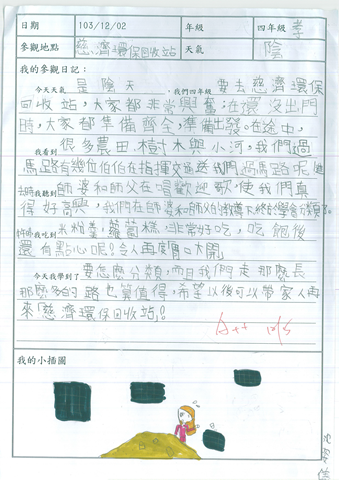 日期 103/12/02 年級 四年級 孝
參觀地點 慈濟環保回收站 天氣 陰
我的參觀日記:
今天天氣 是陰天,我們四年級 要去慈濟環保
回收站,大家都非常興奮;在還沒出門
時,大家都準備齊全,準備出發。在途中,
我看到 很多農田、樹木與小河,我們過
馬路有幾位伯伯在指揮交通送我們過馬路呢!進
去時我聽到 師婆和師父在唱歡迎歌,使我們真
得好高興,我們在師婆和師父的教導下終於學會分類了。
午餐我吃到 米粉羹,蘿蔔糕,非常好吃,吃飽後
還有點心呢!令人再度胃口大開。
今天我學到了 要怎麼分類,而且我們走那麼長
那麼多的路也算值得,希望以後可以帶家人再
來「慈濟環保回收站」!
A++
我的小插圖